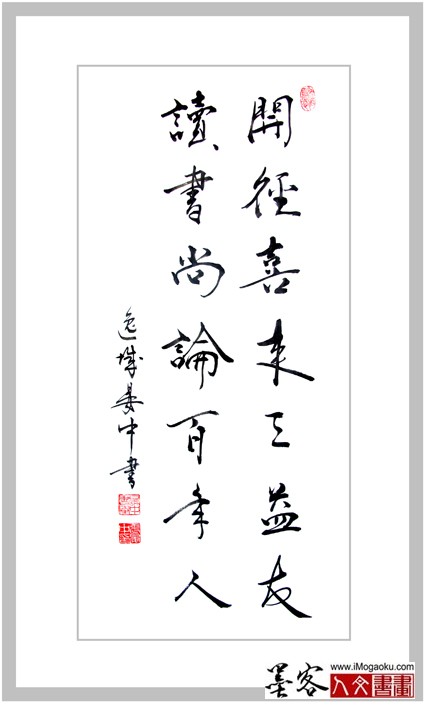 開徑喜來三益友
讀書尚論百年人
逸城晏中書
墨客
www.iMogaoku.com
人文書畫